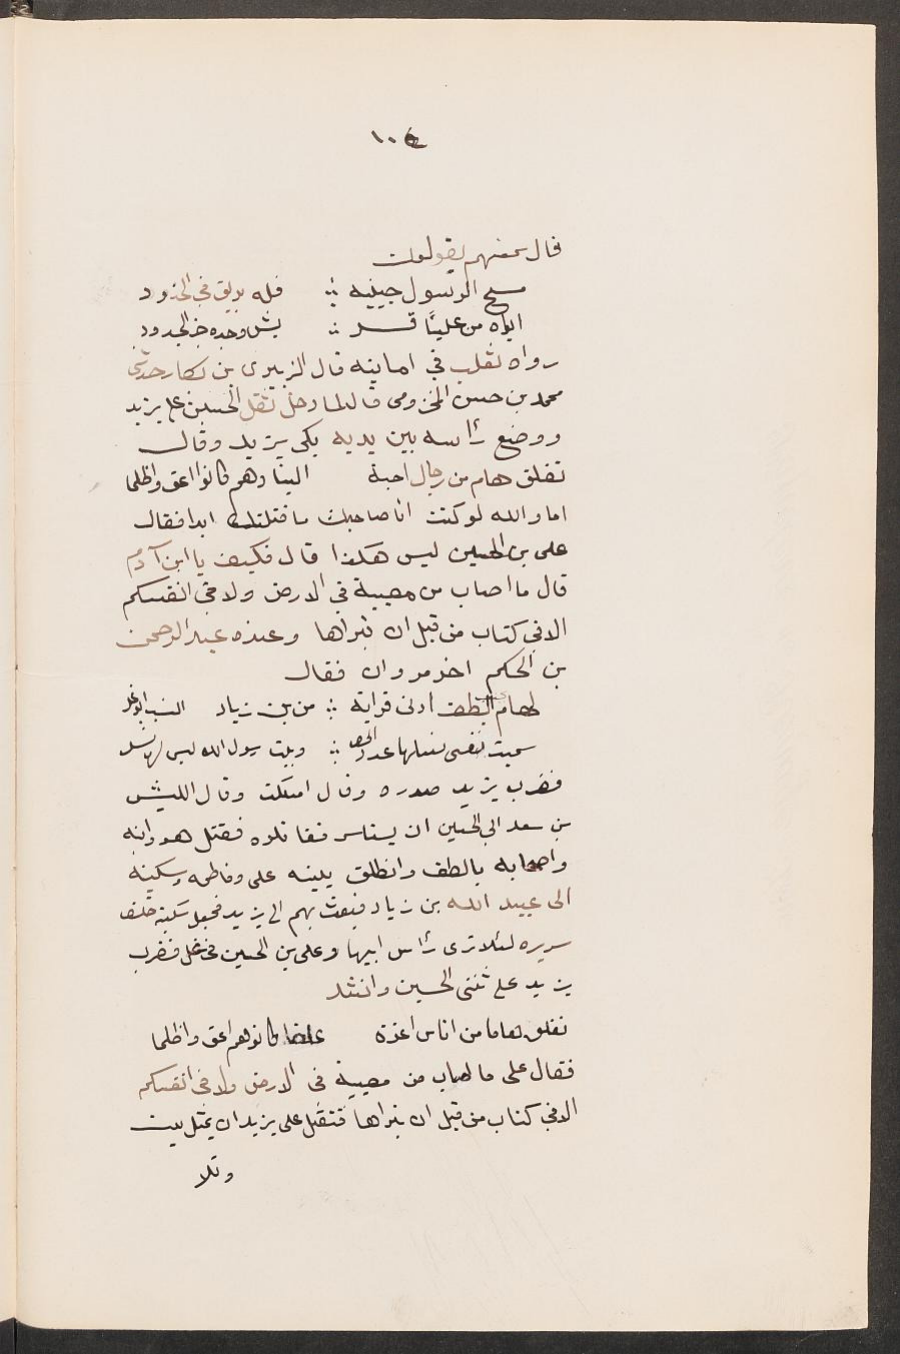 ١٠٤
قال سمعتهم يقولون
مسح الرسول جبينه ∴ فله بريق في الخدود
ابواه من عليا قـــر ∴ يش وجده خير الجدود
رواه ثعلب في اماليه قال الزبيرى بن بكار حدثنى
محمد بن حسن المخزومى قال لما دخل ثقل الحسين على يزيد
ووضع رأسه بين يديه بكى يزيد وقال
تفلق هام من رجال احبة الينا وهم كانوا اعق واظلما
اما والله لو كنت انا صاحبك ما قتلتك ابدا فقال
على بن الحسين ليس هكذا قال فكيف يا ابن آدم
قال ما اصاب من مصيبة في الارض ولا في انفسكم
الا في كتاب من قبل ان نبراها وعنده عبد الرحمن
بن الحكم اخو مروان فقال
لهام الطف أدنى قرابة ∴ من بن زياد النسب الوغل
سميت نسلها عدد الحصى ∴ وبنت رسول الله ليس لها نسل
فضرب يزيد صدره وقال اسكت وقال الليث
بن سعد ابى الحسين ان يستاسر فقاتلوه فقتل هو وابنه
واصحابه بالطف وانطلق ببنيه على وفاطمه وسكينه
الى عبيد الله بن زياد فبعث بهم الى يزيد فجعل سكينة خلف
سريره لئلا ترى رأس ابيها وعلى بن الحسين في غل فضرب
يزيد على ثنتى الحسين وانشد
نفلق هاما من اناس اعزة علينا كانوا هم اعق واظلما
فقال على ما اصاب من مصيبة في الارض ولا في انفسكم
الا في كتاب من قبل ان نبراها فثقل على يزيد ان تمثل ببيت
وتلا